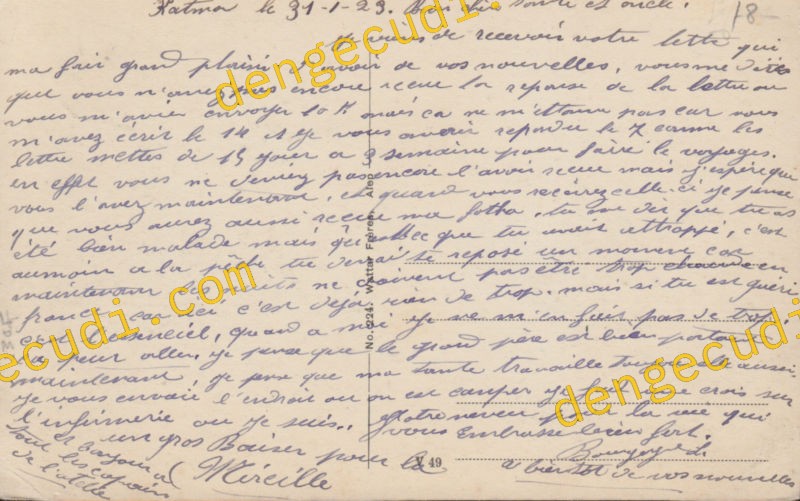 Katma le 31-1-23. Bien cher tante et oncle.
18
je viens de recevoir votre lettre qui
ma fait grand plaisir d'avoir de vos nouvelles, vous me dites
que vous n'avez pas encore recu la reponse de la lettre ou
vous m'aviez envoyer 10 f mais ca ne m'ettonne pas car vous
m'avez écrit le 14 et je vous avair repondu le 7 comme les
lettre mettes de 15 jour a 3 semaine pour faire le voyages.
en effet vous ne devez pas encore l'avoir recue mais j'espère que
vous l'avez maintenant, et quand vous recevrez celle-ci je pense
que vous aurez aussi recue ma fotho. tu me dit que tu as
été bien malade mais qu'est ce que tu avait attrappé, c'est
aumoin a la pêche tu devrai te reposé un moment car
maintenant les nuits ne doivent pas être trop chaude en
france car ici c'est deja rien de trop. mais si tu est gueri
c'est l'essenciel, quand a moi je ne m'en fait pas de trop
sa peur aller, je pense que le grand père est bien portant
maintenant je pense que ma tante travaille toujours elle aussi.
je vous envoie l'endroit ou on est camper je fait une croix sur
l'infirmerie ou je suis. Votre neveu pour la vie qui
vous embrasse bien fort.
un gros Baiser pour la
Mireille
et bonjour a
tout les copains
de l'
a bientot de vos nouvelles
No. 224. Wattar Frères, Alep
V 49
dengecudi.com
dengecudi.com
dengecudi.com
dengecudi.com